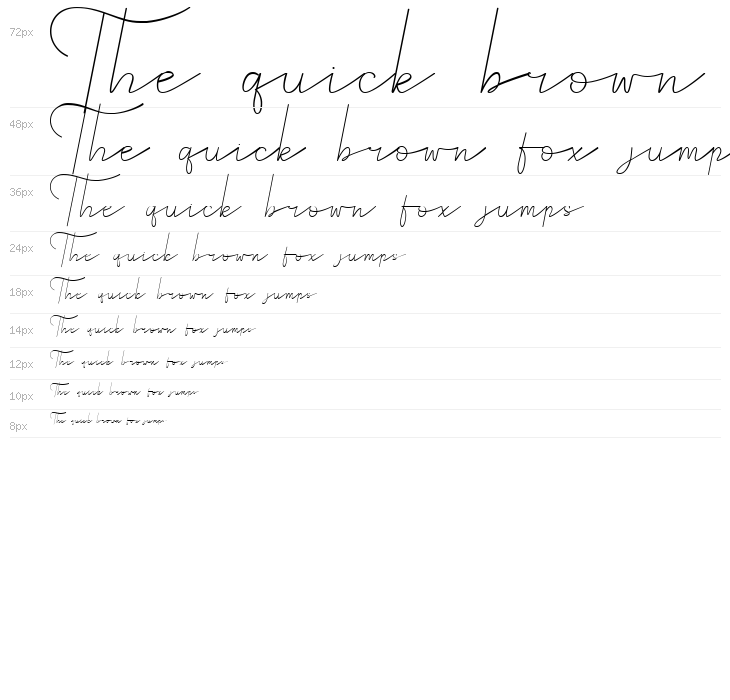 72px The quick brown
48px The quick brown fox jump
36px The quick brown fox jumps
24px The quick brown fox jumps
18px The quick brown fox jumps
14px The quick brown fox jumps
12px The quick brown fox jumps
10px The quick brown fox jumps
8px The quick brown fox jump